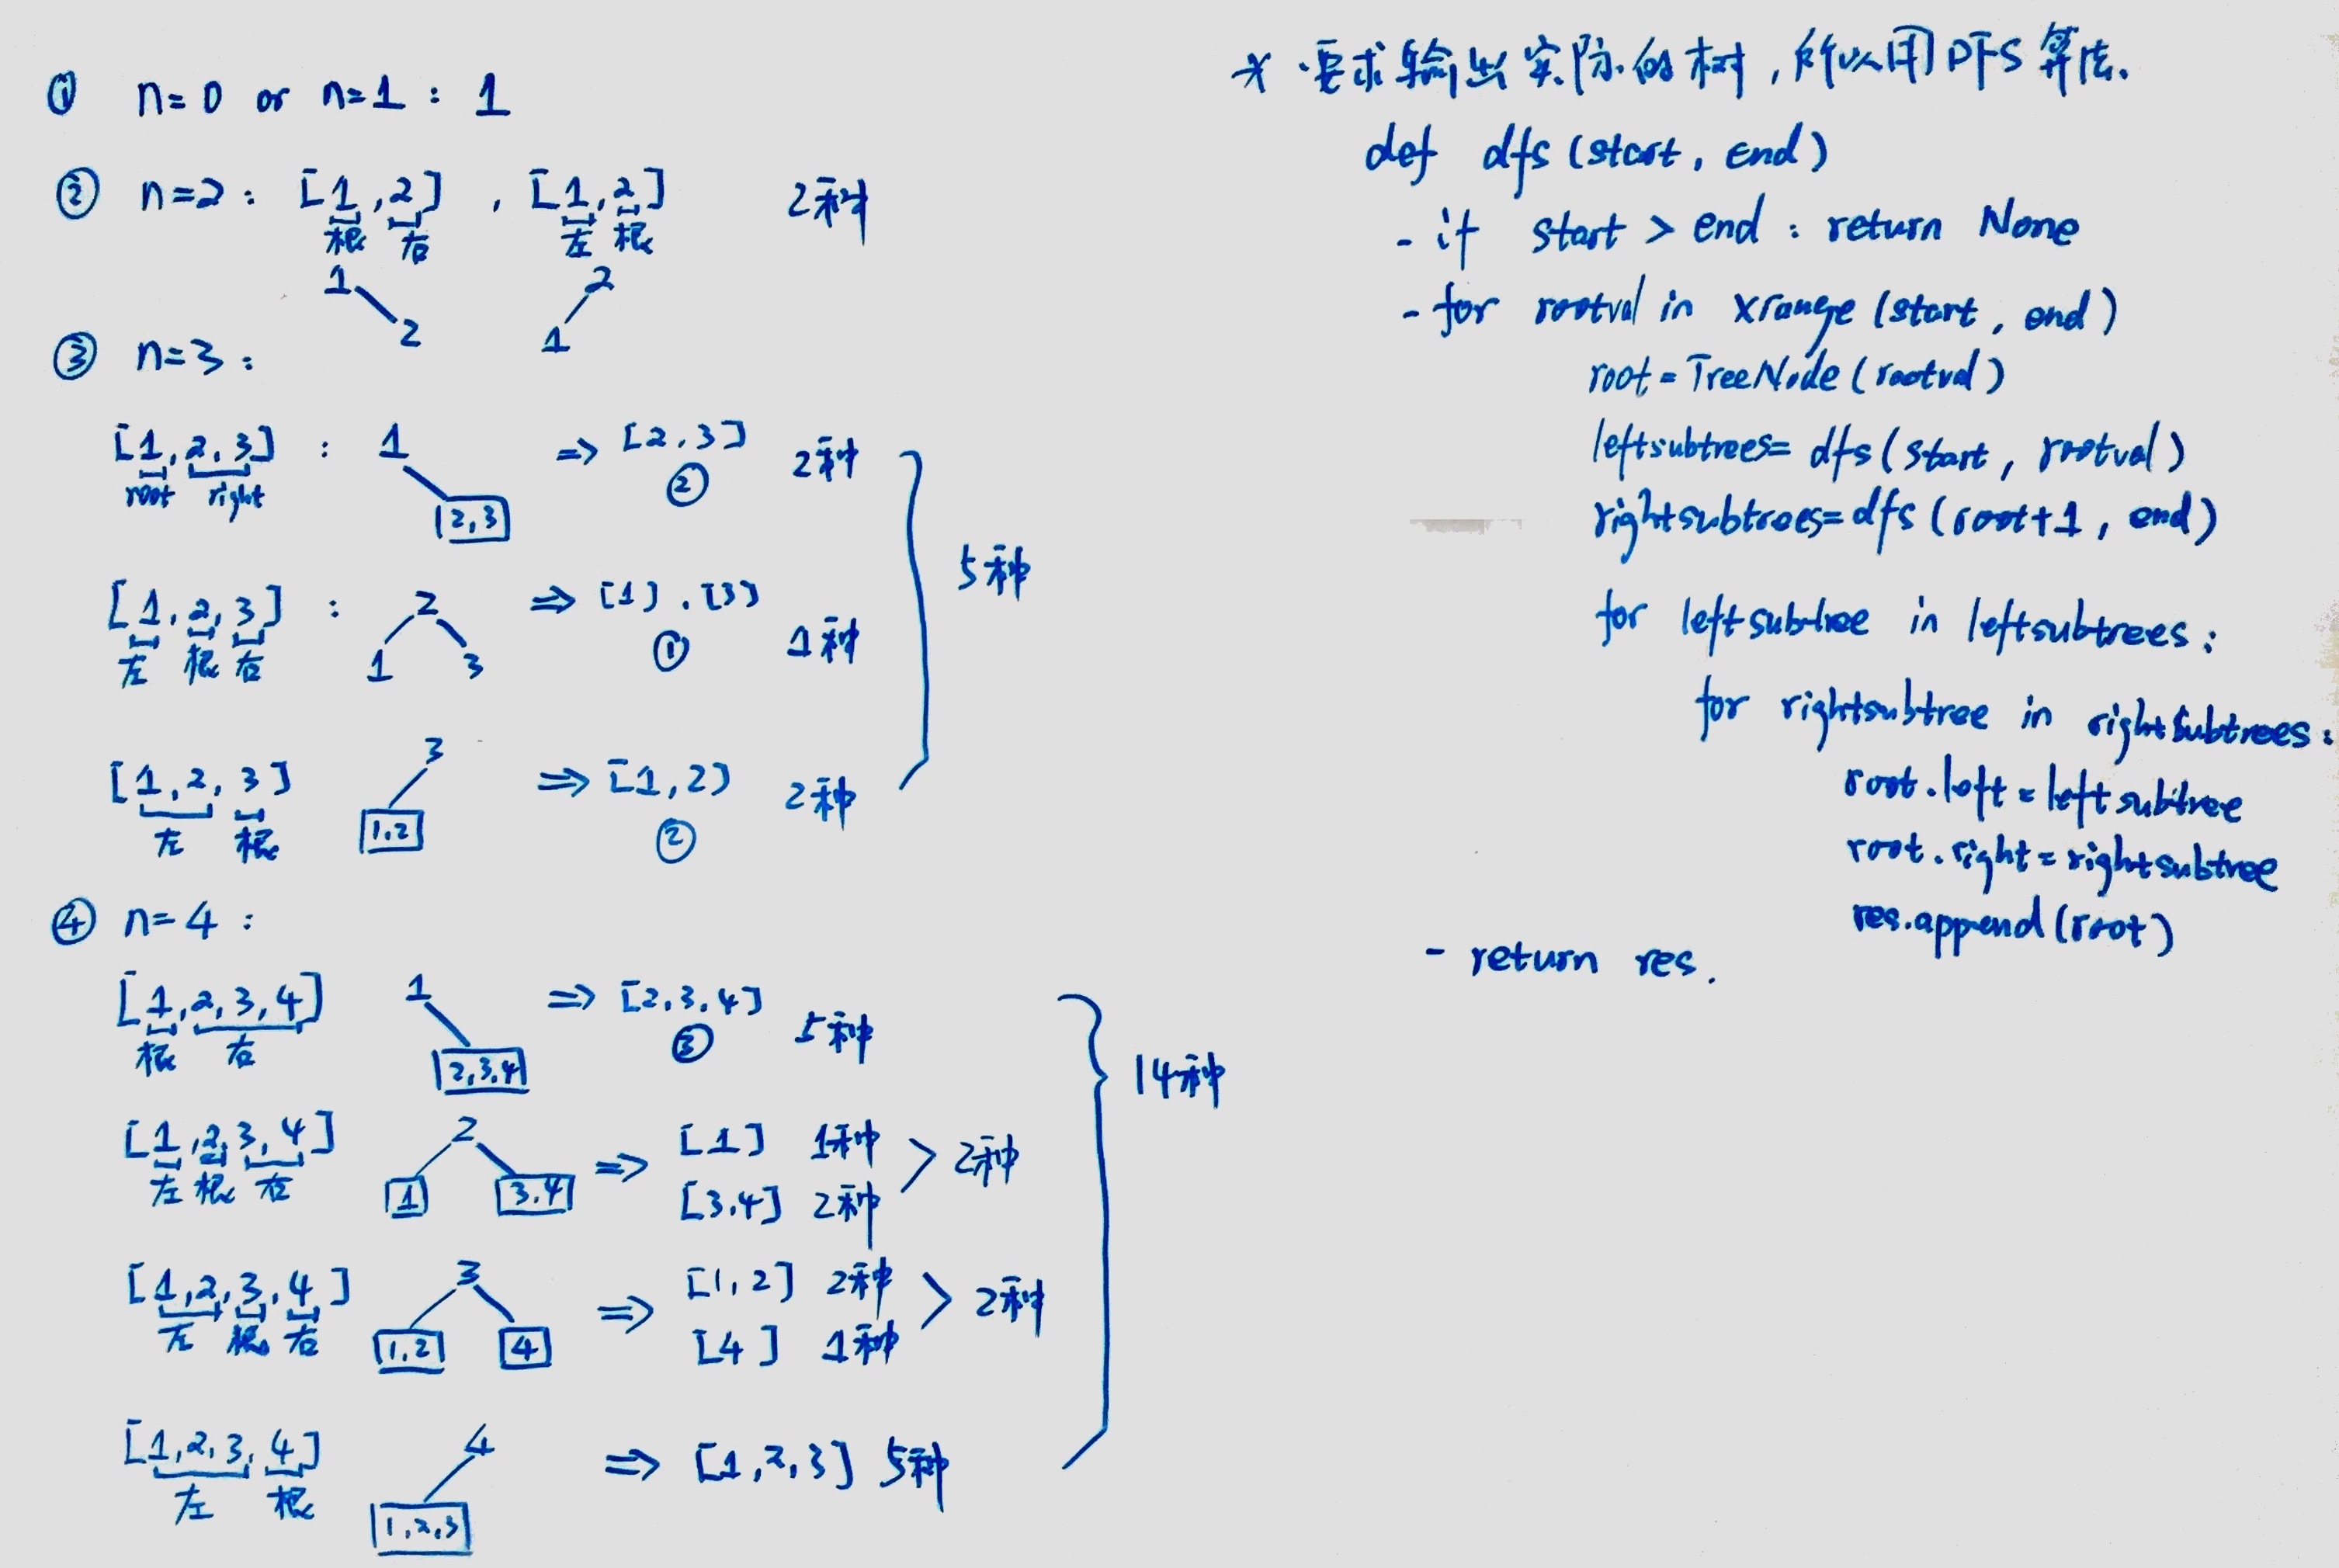 ① n=0 or n=1 : 1
② n=2 : [1,2] , [1,2] 2种
根 右 左 根
1 2
2 1
③ n=3 :
[1,2,3] : 1 => [2,3] 2种
root right 2,3 ②
[1,2,3] : 2 => [1].[3] 1种
左 根 右 1 3 ①
5种
[1,2,3] 3 => [1,2] 2种
左 根 1,2 ②
④ n=4 :
[1,2,3,4] 1 => [2,3,4] 5种
根 右 2,3,4 ③
14种
[1,2,3,4] 2 => [1] 1种 > 2种
左 根 右 1 3,4 [3,4] 2种
[1,2,3,4] 3 => [1,2] 2种 > 2种
左 根 右 1,2 4 [4] 1种
[1,2,3,4] 4 => [1,2,3] 5种
左 根 1,2,3
* ·要求输出实际的树,所以用DFS算法.
def dfs (start, end)
- if start > end : return None
- for rootval in xrange (start, end)
root = TreeNode (rootval)
leftsubtrees= dfs (start, rootval)
rightsubtrees= dfs (root+1, end)
for leftsubtree in leftsubtrees :
for rightsubtree in rightsubtrees :
root.left = leftsubtree
root.right = rightsubtree
res.append (root)
- return res.